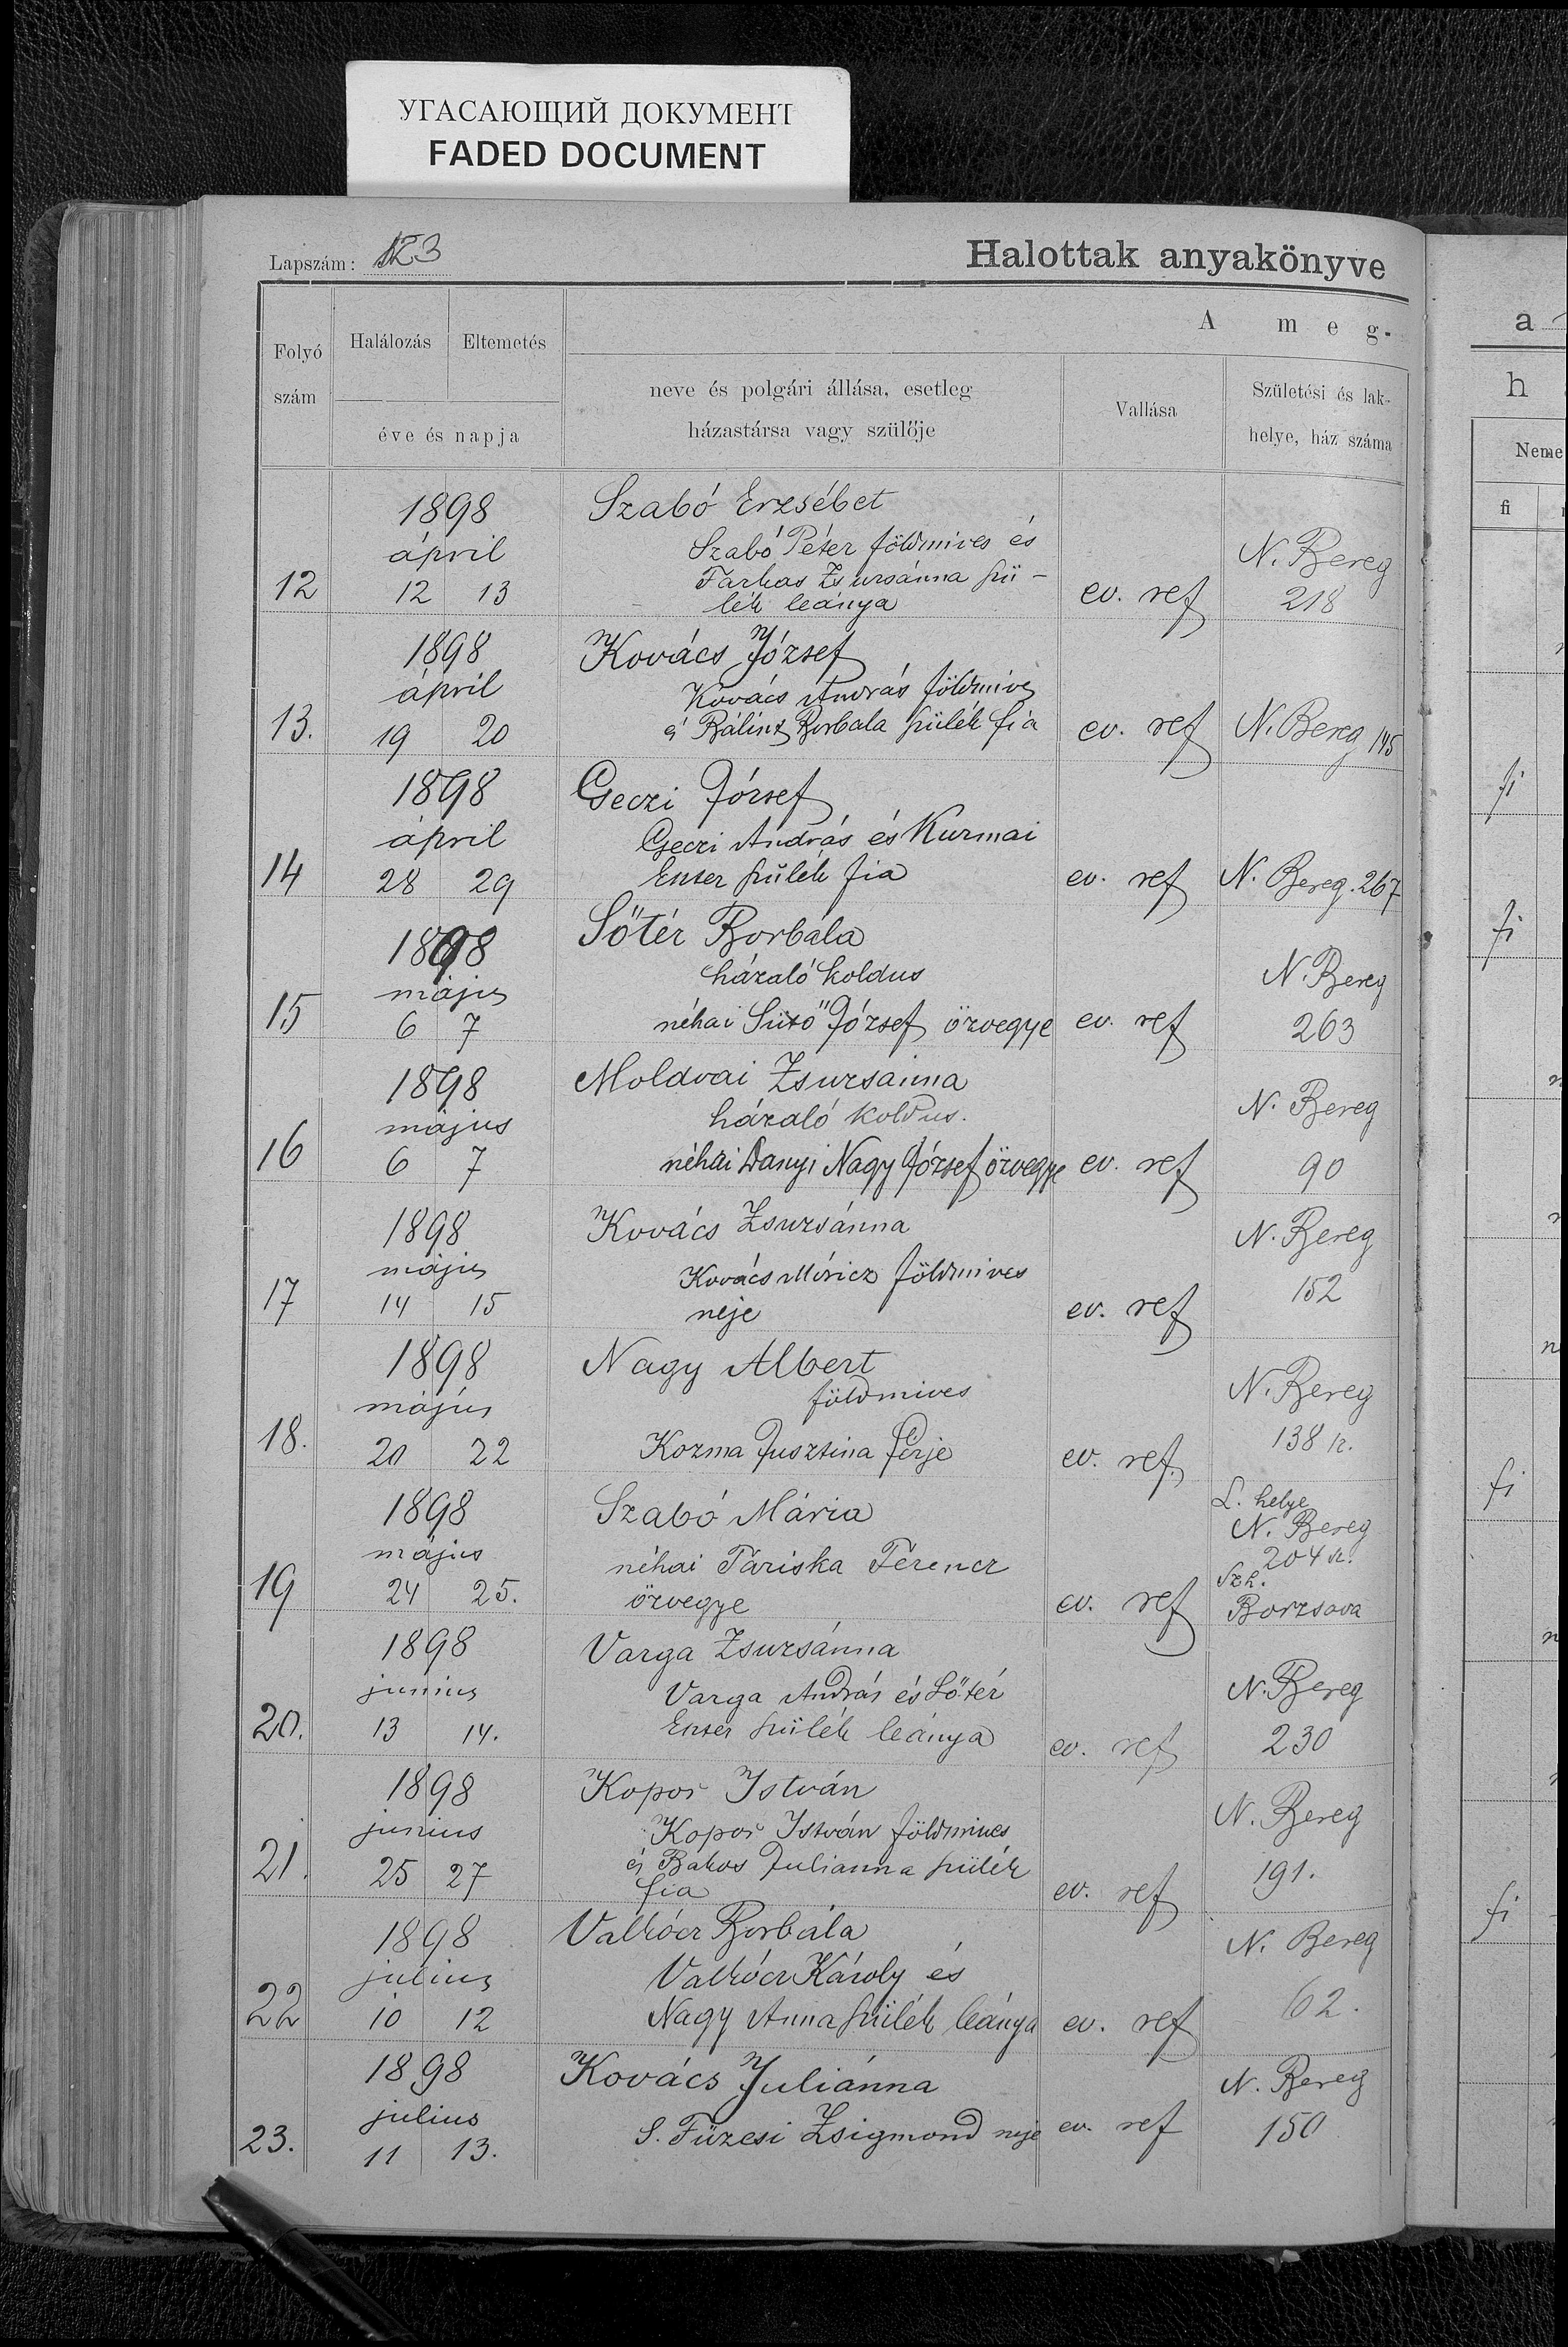 УГАСАЮЩИЙ ДОКУМЕНТ
FADED DOCUMENT
Lapszám: 123
Halottak anyakönyve
Folyó szám
Halálozás
Eltemetés
éve és napja
A meg-
neve és polgári állása, esetleg
házastársa vagy szülője
Vallása
Születési és lak-
helye, ház száma
a
h
Neme
fi
1898
ápril
12
12 13
Szabó Erzsébet
Szabó Péter földmives és
Farkas Zsuzsánna szü-
lék leánya
ev. ref
N. Bereg
218
1898
ápril
13.
19 20
Kovács József
Kovács András földmives
és Bálint Borbala szülék fia
ev. ref
N. Bereg 145
fi
1898
ápril
14
28 29
Géczi József
Géczi András és Kurmai
Eszter szülék fia
ev. ref
N. Bereg. 267
fi
1898
május
15
6 7
Sőtér Borbála
házaló koldus
néhai Sütő József özvegye
ev. ref
N. Bereg
263
1898
május
16
6 7
Moldvai Zsuzsánna
házaló koldus.
néhai Danyi Nagy József özvegye
ev. ref
N. Bereg
90
1898
május
17
14 15
Kovács Zsuzsánna
Kovács Móricz földmives
neje
ev. ref
N. Bereg
152
1898
május
18.
20 22
Nagy Albert
földmives
Kozma Jusztina férje
ev. ref.
N. Bereg
138 sz.
fi
1898
május
19
24 25.
Szabó Mária
néhai Tariska Ferencz
özvegye
ev. ref
L. helye
N. Bereg
204 sz.
Szh.
Borzsova
1898
junius
20.
13 14.
Varga Zsuzsánna
Varga András és Sőtér
Eszter szülék leánya
ev. ref
N. Bereg
230
1898
junius
21.
25 27
Kopor István
Kopor István földmives
és Bakos Julianna szülék
fia
ev. ref
N. Bereg
191.
fi
1898
julius
22
10 12
Valkócz Borbála
Valkócz Károly és
Nagy Anna szülék leánya
ev. ref
N. Bereg
62.
1898
julius
23.
11 13.
Kovács Juliánna
S. Füzesi Zsigmond neje
ev. ref
N. Bereg
150